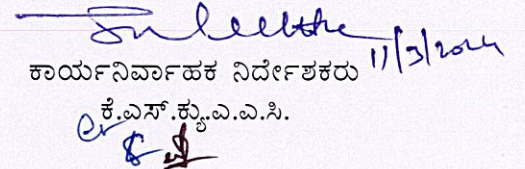 11/3/2024
ಕಾರ್ಯನಿರ್ವಾಹಕ ನಿರ್ದೇಶಕರು
ಕೆ.ಎಸ್.ಕ್ಯು.ಎ.ಎ.ಸಿ.